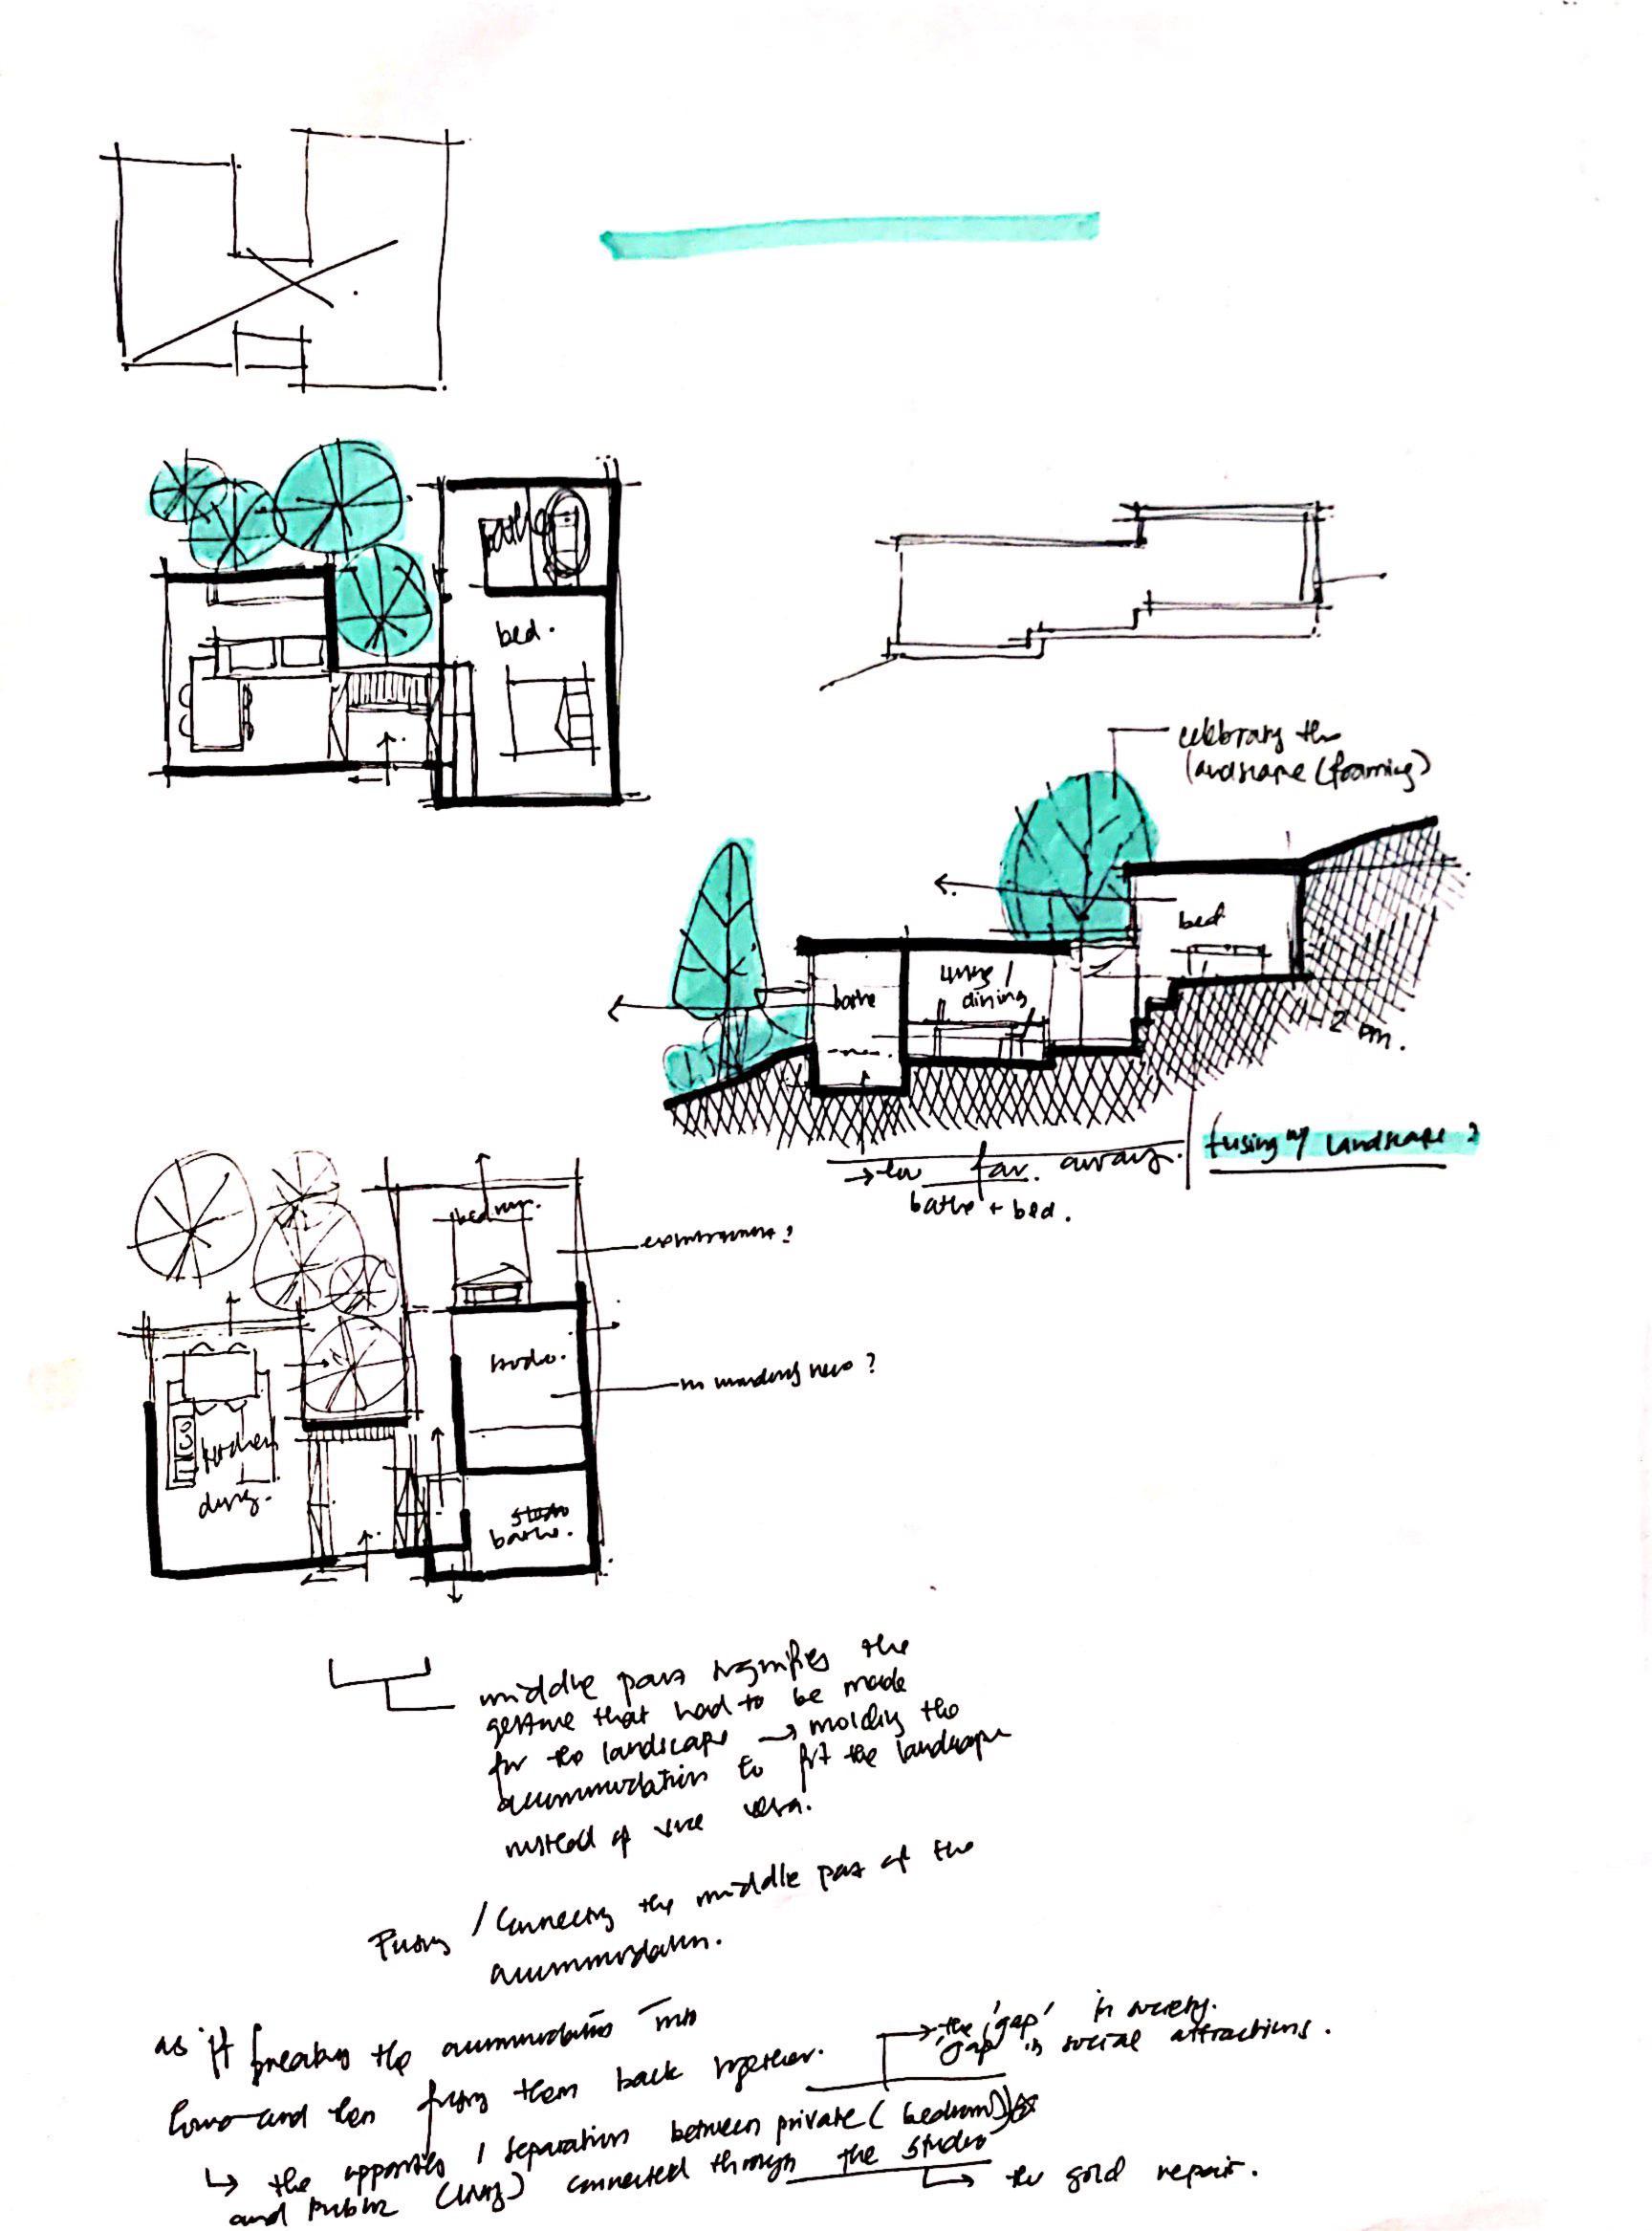 bathe
bed.
celebrating the
landscape (framing)
bed
living /
dining
bathe
2 m.
fusing w/ landscape?
→ too far away.
bathe + bed.
bedroom.
studio.
kitchen
dining.
studio
bathe.
middle part signifies the
gesture that had to be made
for the landscape → molding the
accommodation to fit the landscape
instead of vice versa.
Fusing / Connecting the middle part of the
accommodation.
as if breaking the accommodation into
and then fusing them back together.
→ the 'gap' in society.
'gap' in social attractions.
↳ the opposites / separation between private (bedroom)
and public (living) connected through the studio
↳ the gold repair.